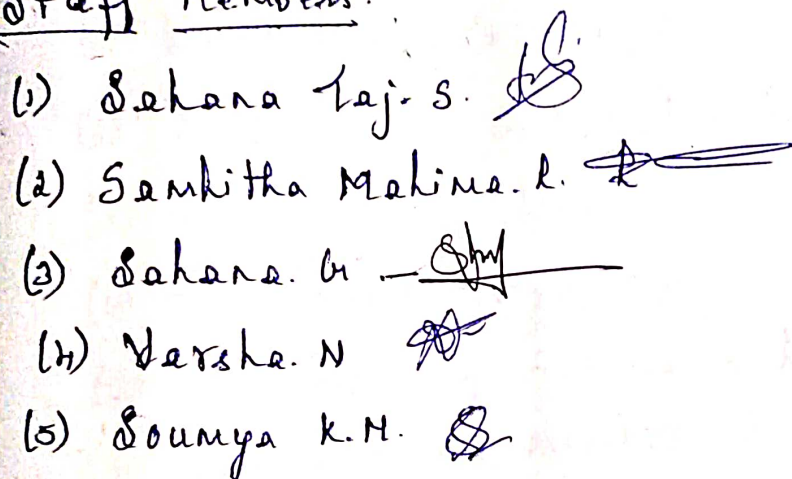 Staff Members.
(1) Sahana Taj. S.
(2) Samhitha Mahima. R.
(3) Sahana. G
(4) Varsha. N
(5) Soumya K.M.